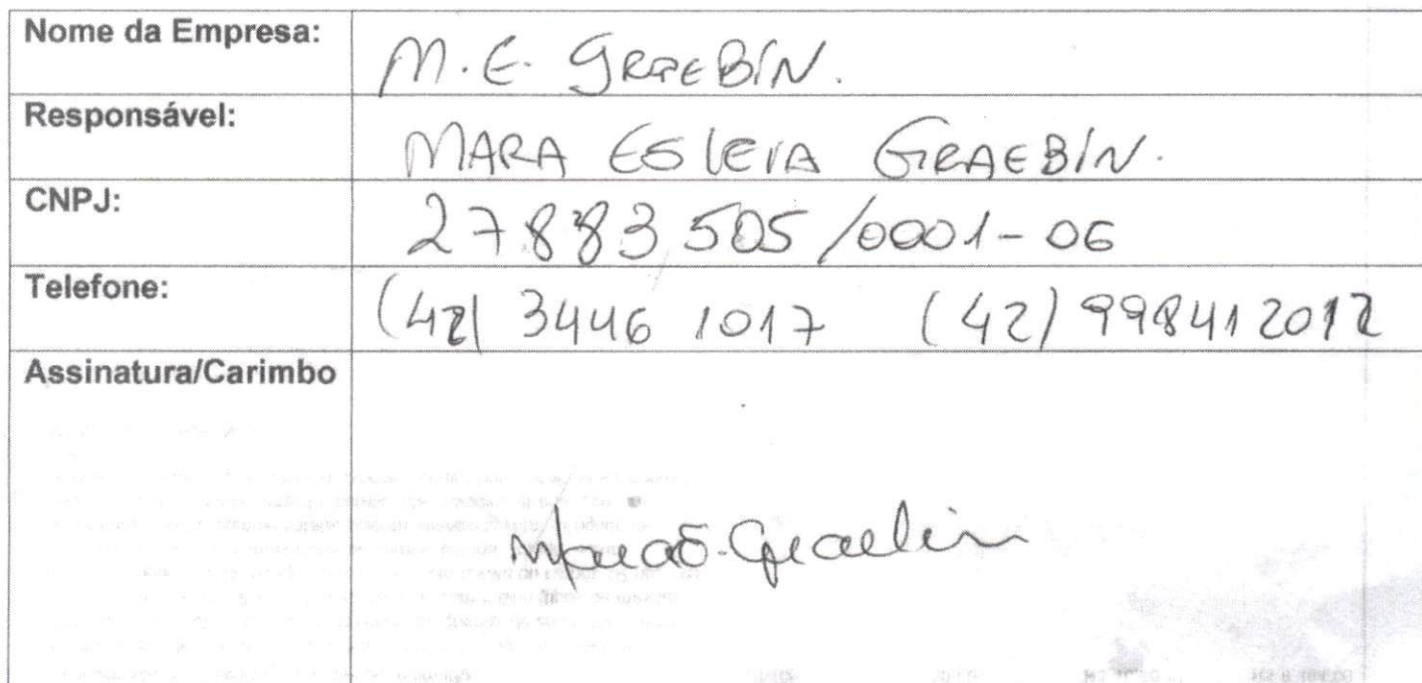 Nome da Empresa: M.E. GRAEBIN.
Responsável: MARA ESLEIA GRAEBIN.
CNPJ: 27883505/0001-06
Telefone: (42) 3446 1017 (42) 998412012
Assinatura/Carimbo
Mara E. Graebin